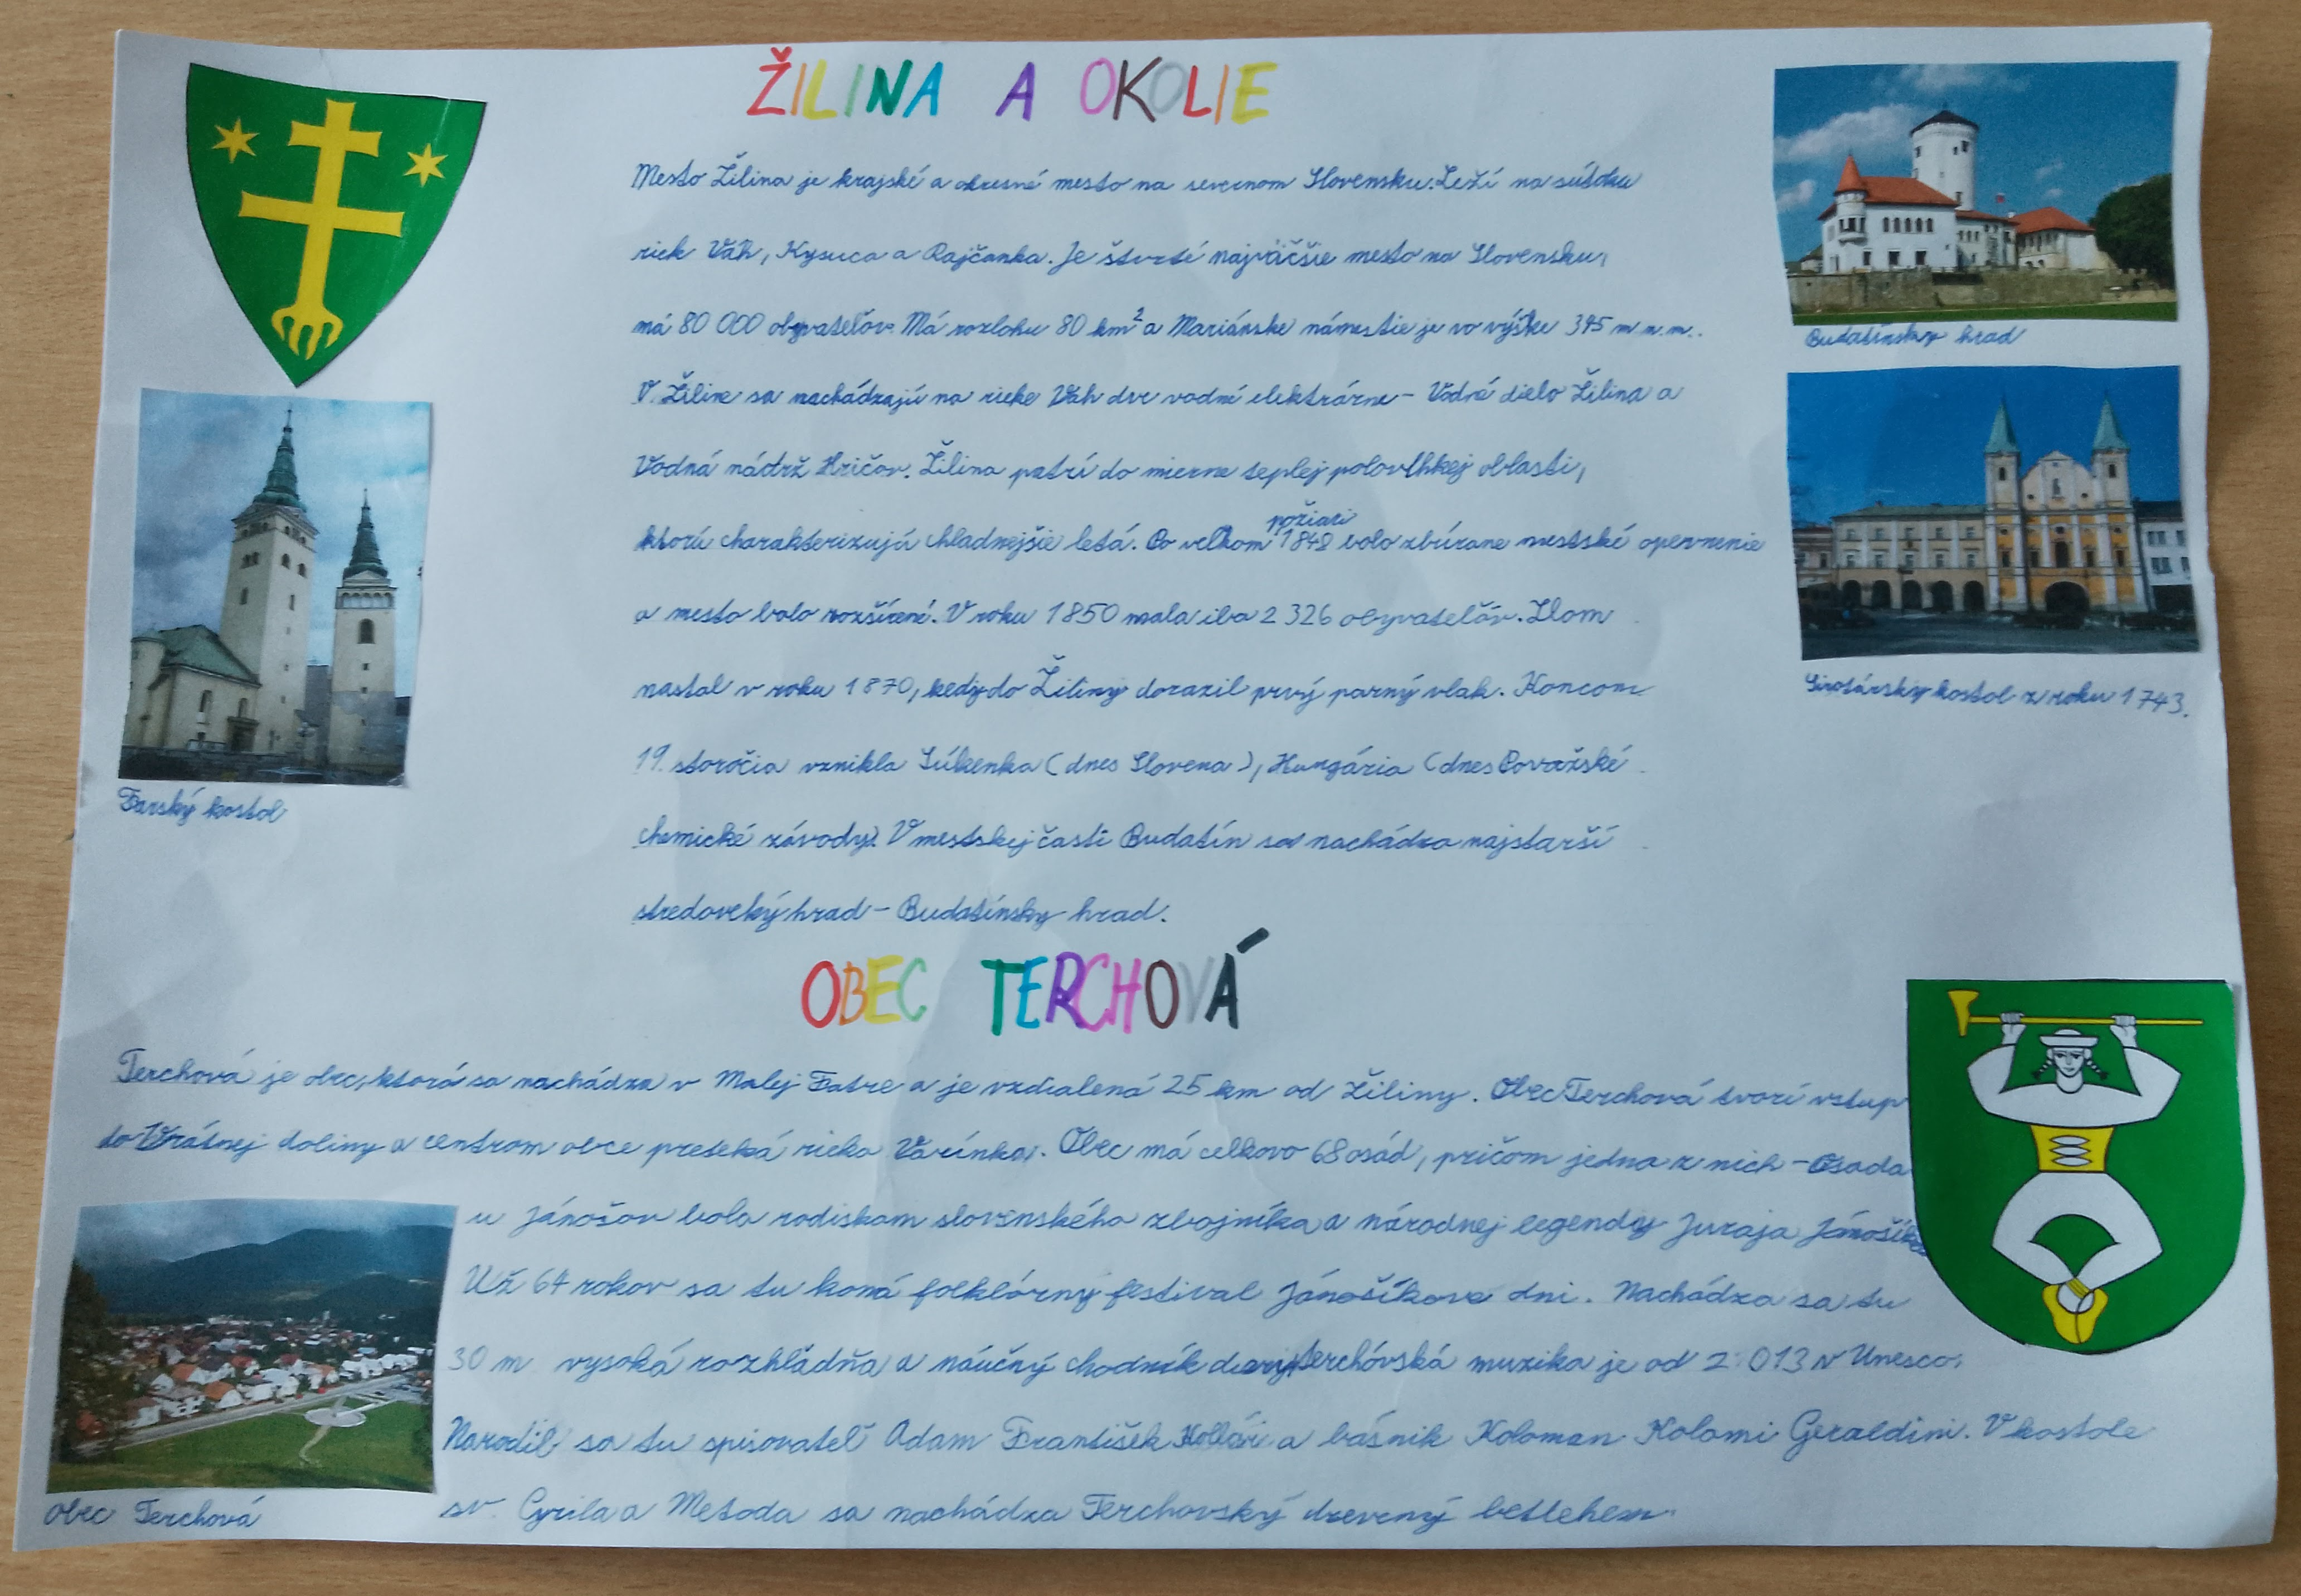 ŽILINA A OKOLIE
Mesto Žilina je krajské a okresné mesto na severnom Slovensku. Leží na sútoku
riek Váh, Kysuca a Rajčanka. Je štvrté najväčšie mesto na Slovensku,
má 80 000 obyvateľov. Má rozlohu 80 km² a Mariánske námestie je vo výške 345 m n.m..
V Žiline sa nachádzajú na rieke Váh dve vodné elektrárne - Vodné dielo Žilina a
Vodná nádrž Hričov. Žilina patrí do mierne teplej polovlhkej oblasti,
ktorú charakterizujú chladnejšie letá. Po veľkom požiari 1848 bolo zbúrane mestské opevnenie
a mesto bolo rozšírené. V roku 1850 mala iba 2 326 obyvateľov. Zlom
nastal v roku 1870, kedy do Žiliny dorazil prvý parný vlak. Koncom
19. storočia vznikla Súkenka (dnes Slovena), Hungária (dnes Považské
chemické závody). V mestskej časti Budatín sa nachádza najstarší
stredoveký hrad - Budatínsky hrad.
Budatínsky hrad
Sirotársky kostol z roku 1743.
Farský kostol
OBEC TERCHOVÁ
Terchová je obec, ktorá sa nachádza v Malej Fatre a je vzdialená 25 km od Žiliny. Obec Terchová tvorí vstup
do Vrátnej doliny a centrom obce preteká rieka Varínka. Obec má celkovo 68 osád, pričom jedna z nich - Osada
u Jánošov bola rodiskom slovenského zbojníka a národnej legendy Juraja Jánošíka
Už 64 rokov sa tu koná folklórny festival Jánošíkove dni. Nachádza sa tu
30 m vysoká rozhľadňa a náučný chodník diery, terchovská muzika je od 2 013 v Unesco.
Narodil sa tu spisovateľ Adam František Kollár a básnik Koloman Kolomi Geraldini. V kostole
sv. Cyrila a Metoda sa nachádza Terchovský drevený betlehem.
Obec Terchová